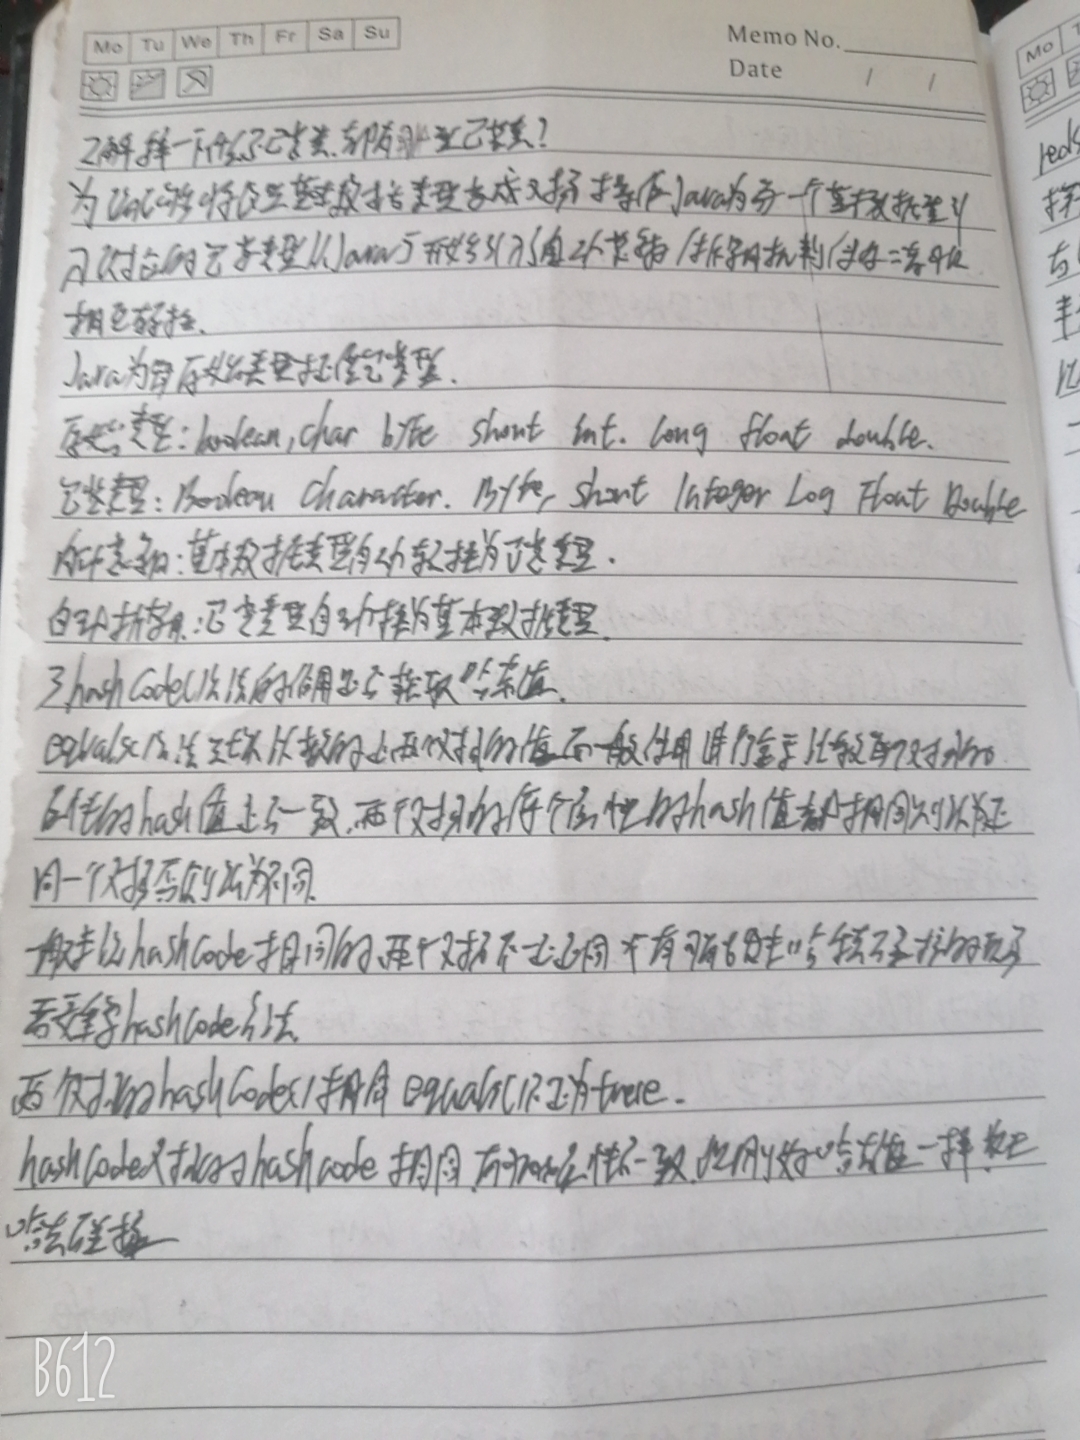 Mo Tu We Th Fr Sa Su
Memo No.
Date / /
2解释一下什么是包装类,都有哪些包装类?
为了能够将这些基本数据类型当成对象操作Java为每一个基本数据类型引
入了对应的包装类型从Java5开始引入了自动装箱/拆箱机制使得二者可以
相互转换.
Java为每原始类型提供包装类型.
原始类型:boolean,char byte short int. long float double.
包装类型:Boolean Character. Byte, Short Integer Log Float Double
基本数据类型自动转换为包装类型.
自动拆箱:包装类型自动转换为基本数据类型.
3 hashCode()方法的作用是获取哈希值.
equals()方法 的是两个对象的值 一般使用 比较两个对象的
属性的hash值是否一致.两个对象的每个属性的hash值都相同则认为是
同一个对象否则认为不同.
一般来说hashCode相同的两个对象不一定相同 有可能发生哈
若要重写hashCode方法.
两个对象的hashCode()相同equals()不一定为true.
hashCode对象的hashcode相同. 属性不一致. 哈希值一样.
哈希碰撞
Mo
B612